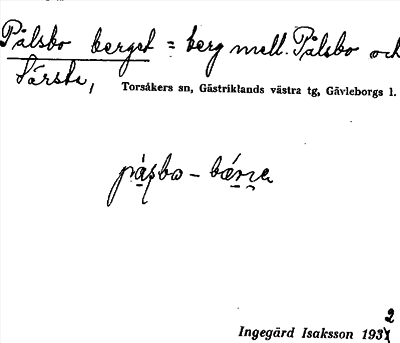 Pålsbo berget = berg mell. Pålsbo och
Sårsta,
Torsåkers sn, Gästriklands västra tg, Gävleborgs l.
påsbo - bærre
2
Ingegärd Isaksson 193